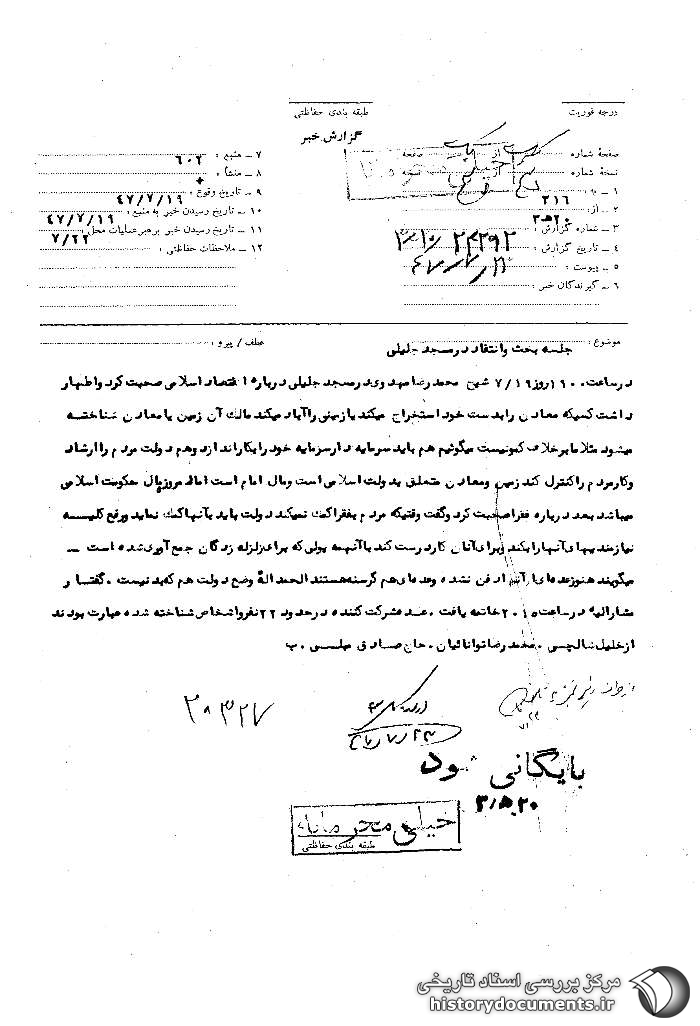 درجه فوریت
طبقه بندی حفاظتی
گزارش خبر
صفحهٔ شماره از صفحه
نسخهٔ شماره از نسخه
۱ ـ به :
۲ ـ از : ۳۱۶
۳ ـ شماره گزارش : ۲۴۲۹۲
۴ ـ تاریخ گزارش :
۵ ـ پیوست :
۶ ـ گیرندگان خبر :
۷ ـ منبع : ۶۰۲
۸ ـ منشأ :
۹ ـ تاریخ وقوع : ۴۷/۷/۱۹
۱۰ ـ تاریخ رسیدن خبر به منبع : ۴۷/۷/۱۹
۱۱ ـ تاریخ رسیدن خبر برهبر عملیات محل : ۷/۲۲
۱۲ ـ ملاحظات حفاظتی :
موضوع : جلسه بحث و انتقاد در مسجد جلیلی
عطف / پیرو :
در ساعت ۱۹۰۰ روز ۷/۱۹ شیخ محمد رضا مهدوی در مسجد جلیلی درباره اقتصاد اسلامی صحبت کرد و اظهار
داشت کسیکه معادن را بدست خود استخراج میکند یا زمینی را آباد میکند مالک آن زمین یا معادن شناخته
میشود مثلا ما برخلاف کمونیست میگوئیم هم باید سرمایه دار سرمایه خود را بکار اندازد و هم دولت مردم را ارشاد
و کار مردم را کنترل کند زمین و معادن متعلق بدولت اسلامی است و مال امام است امام مروز مال حکومت اسلامی
میباشد بعد درباره فقرا صحبت کرد و گفت وقتیکه مردم بفقرا کمک نمیکند دولت باید بآنها کمک نماید و رفع کلیه
نیازمندیهای آنها را بکند و برای آنان کار درست کند با آنهمه پولی که برای زلزله زدگان جمع آوری شده است ـ
میگویند هنوز عده ای از آنها دفن نشده و عده ای هم گرسنه هستند الحمد اله وضع دولت هم که بد نیست . گفتار
مشارالیه در ساعت ۲۰۱۵ خاتمه یافت . عده شرکت کننده در حدود ۲۲ نفر و اشخاص شناخته شده عبارت بودند
از خلیل شالچی . محمد رضا توانائیان . حاج صادق . ب
۴۷/۷/۲۳
بایگانی شود
خیلی محرمانه
طبقه بندی حفاظتی
مرکز بررسی اسناد تاریخی
historydocuments.ir